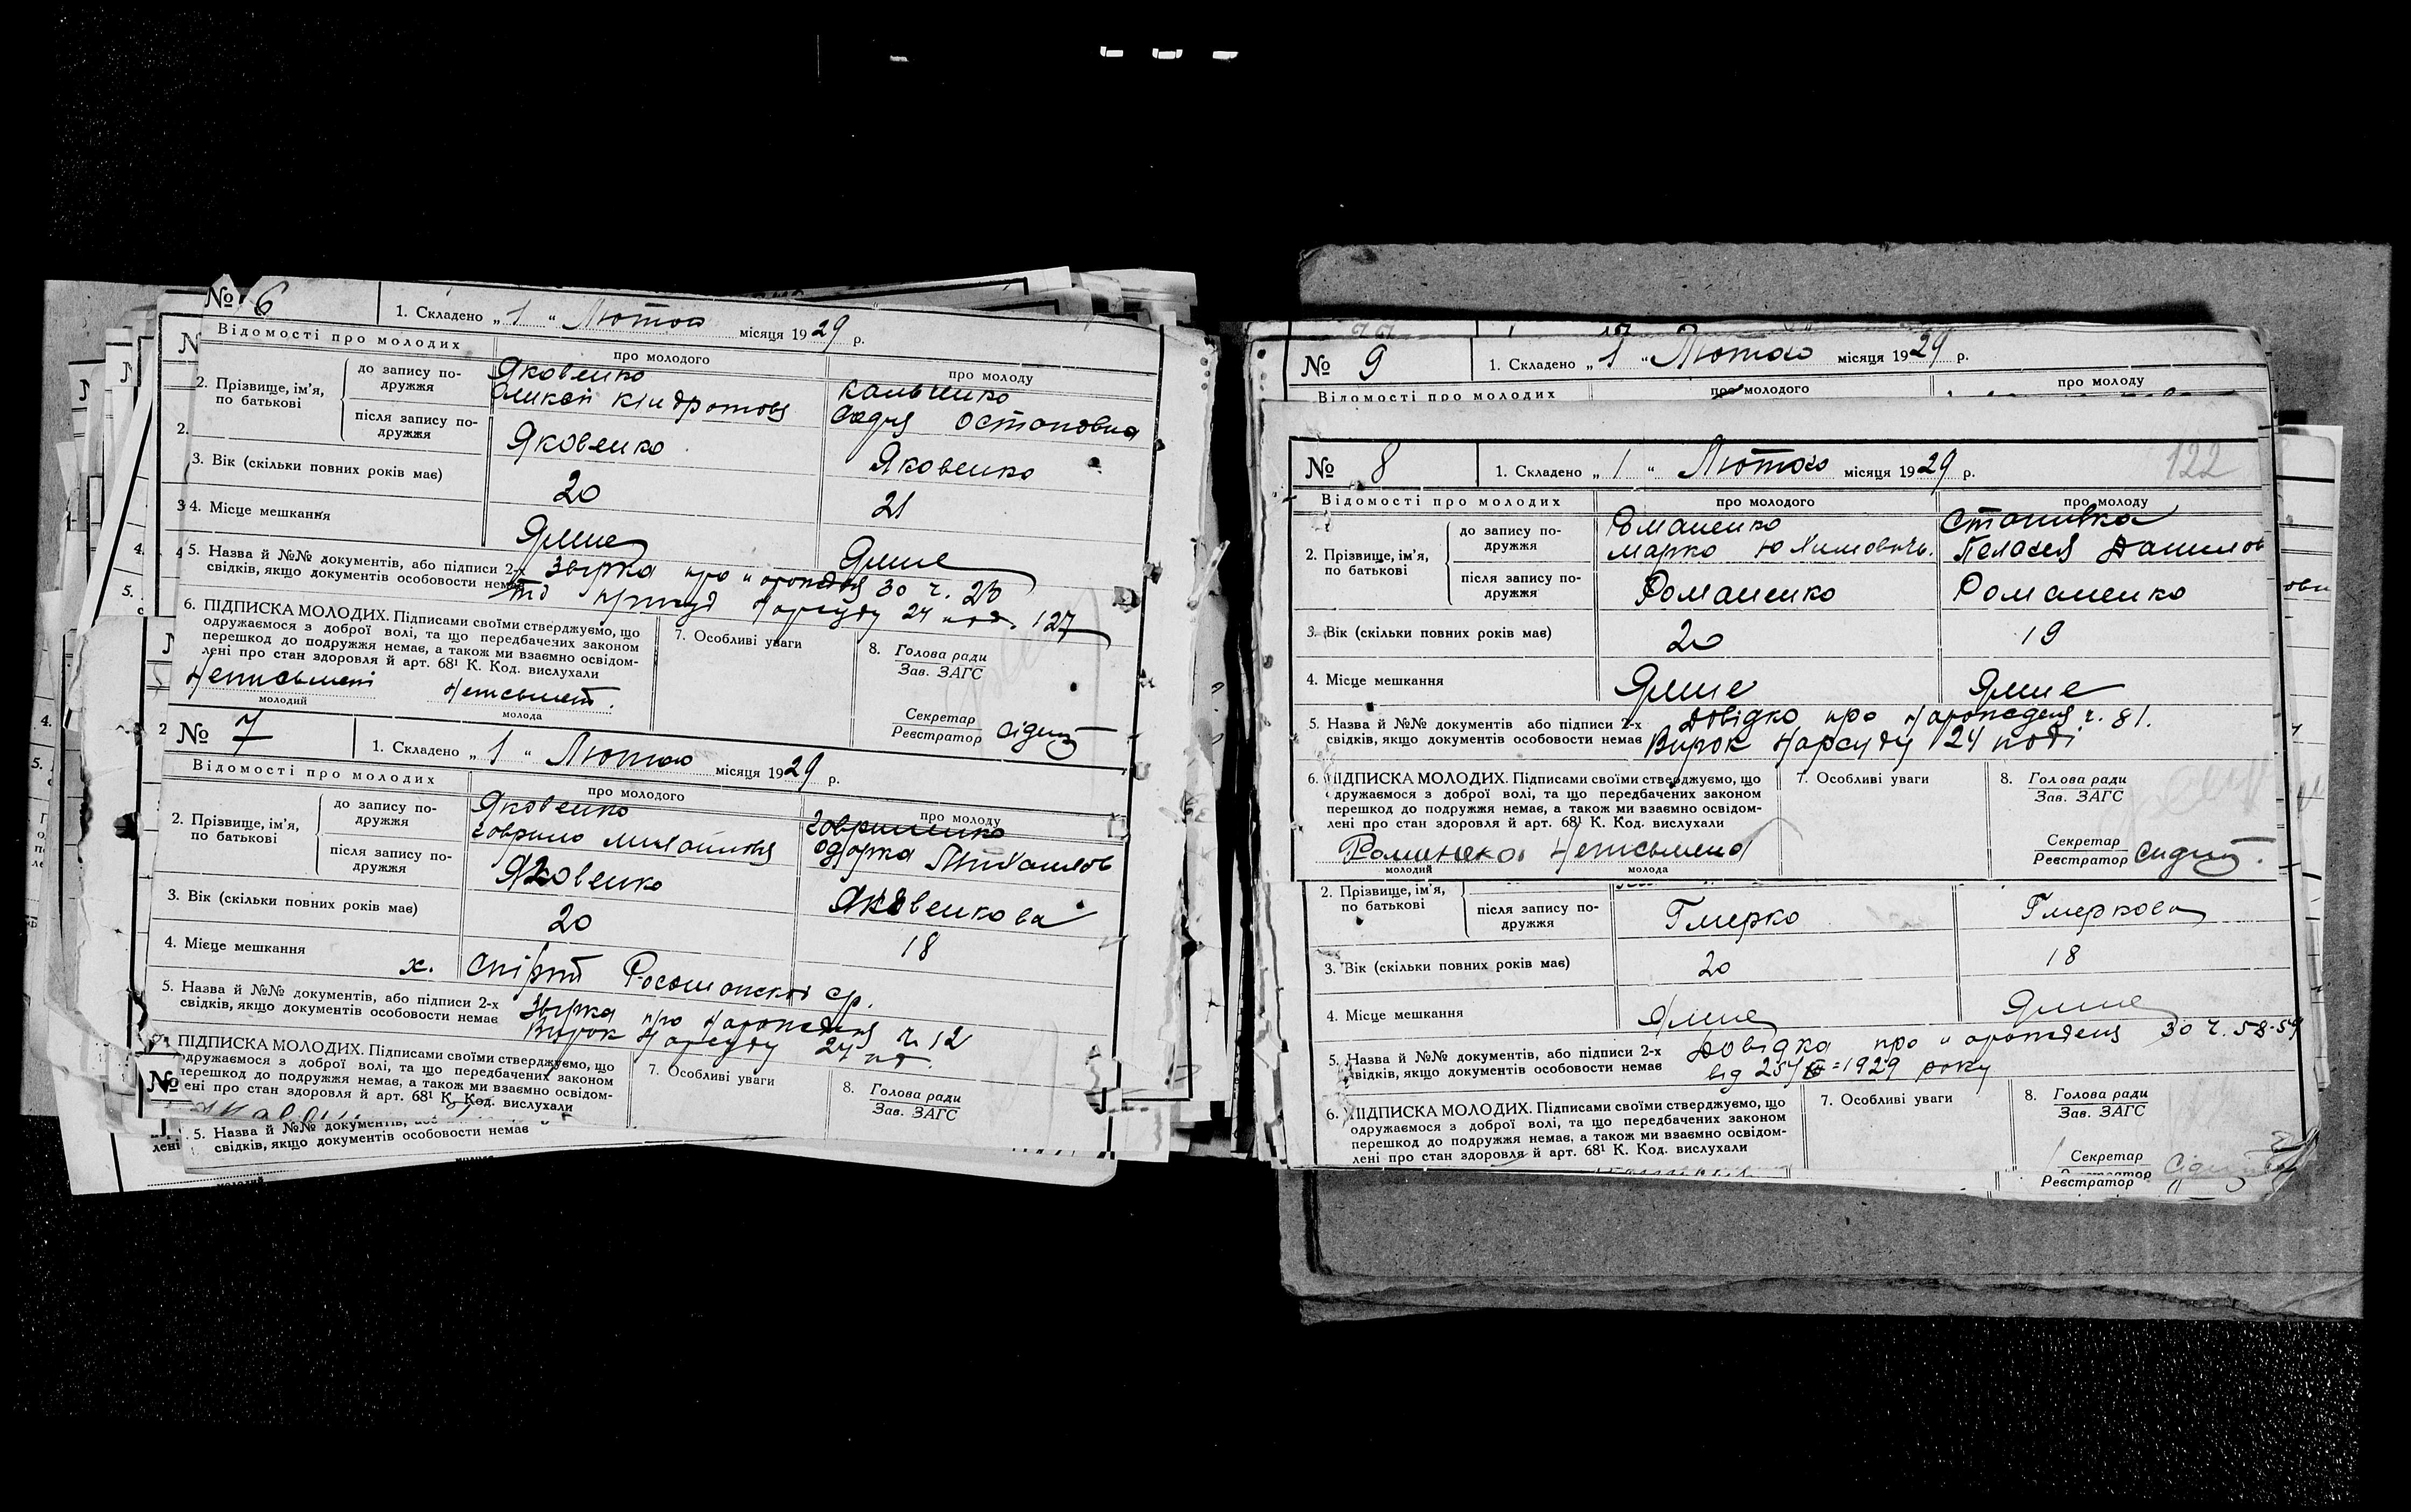 № 6
1. Складено „ 1 “ Лютого місяця 1929 р.
Відомості про молодих
про молодого
про молоду
2. Прізвище, ім’я, по батькові
до запису по-
дружжя
Яковенко
Кальченко
Кіндратов
Остаповна
після запису по-
дружжя
Яковенко
Яковенко
3. Вік (скільки повних років має)
20
21
4. Місце мешкання
Ямне
Ямне
5. Назва й №№ документів, або підписи 2-х
свідків, якщо документів особовости немає
про 30 ч. 23
Нарсуду 24 127
6. ПІДПИСКА МОЛОДИХ. Підписами своїми стверджуємо, що
одружаємося з доброї волі, та що передбачених законом
перешкод до подружжя немає, а також ми взаємно освідом-
лені про стан здоровля й арт. 68¹ К. Код. вислухали
Неписьмені
молодий
молода
7. Особливі уваги
8. Голова ради
Зав. ЗАГС
Секретар
Реєстратор
№ 7
1. Складено „ 1 “ Лютого місяця 1929 р.
Відомості про молодих
про молодого
про молоду
2. Прізвище, ім’я,
по батькові
до запису по-
дружжя
Яковенко
Говриленко
Говрило
Одарка
після запису по-
дружжя
Яковенко
Яковенкова
3. Вік (скільки повних років має)
20
18
4. Місце мешкання
х. ср.
5. Назва й №№ документів, або підписи 2-х
свідків, якщо документів особовости немає
про ч. 12
Вирок Нарсуду 24
ПІДПИСКА МОЛОДИХ. Підписами своїми стверджуємо, що
одружаємося з доброї волі, та що передбачених законом
перешкод до подружжя немає, а також ми взаємно освідом-
ені про стан здоровля й арт. 68¹ К. Код. вислухали
7. Особливі уваги
8. Голова ради
Зав. ЗАГС
№
5. Назва й №№ документів,
свідків, якщо документів особовости немає
№ 9
1. Складено „ 1 “ Лютого місяця 1929 р.
Відомості про молодих
про молодого
про молоду
№ 8
1. Складено „ 1 “ Лютого місяця 1929 р.
122
Відомості про молодих
про молодого
про молоду
2. Прізвище, ім’я,
по батькові
до запису по-
дружжя
Романенко
Марко Юхимович.
Пелагея Данилов
після запису по-
дружжя
Романенко
Романенко
3. Вік (скільки повних років має)
20
19
4. Місце мешкання
Ямне
Ямне
5. Назва й №№ документів або підписи 2-х
свідків, якщо документів особовости немає
Довідка про народженя ч. 81.
Вирок Нарсуду 24
6. ПІДПИСКА МОЛОДИХ. Підписами своїми стверджуємо, що
одружаємося з доброї волі, та що передбачених законом
перешкод до подружжя немає, а також ми взаємно освідом-
лені про стан здоровля й арт. 68¹ К. Код. вислухали
Неписьмена
молодий
молода
7. Особливі уваги
8. Голова ради
Зав. ЗАГС
Секретар
Реєстратор
2. Прізвище, ім’я,
по батькові
після запису по-
дружжя
Гмерко
Гмеркова
3. Вік (скільки повних років має)
20
18
4. Місце мешкання
Ямне
Ямне
5. Назва й №№ документів, або підписи 2-х
свідків, якщо документів особовости немає
Довідка про народженя 30 ч. 58-59
від 1929 року
6. ПІДПИСКА МОЛОДИХ. Підписами своїми стверджуємо, що
одружаємося з доброї волі, та що передбачених законом
перешкод до подружжя немає, а також ми взаємно освідом-
лені про стан здоровля й арт. 68¹ К. Код. вислухали
7. Особливі уваги
8. Голова ради
Зав. ЗАГС
Секретар
Реєстратор